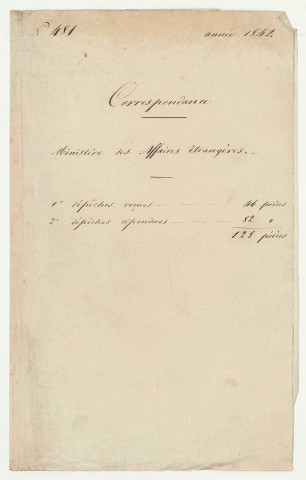 N° 481 année 1842.
Correspondance
Ministère des Affaires Etrangères.
1° dépêches reçues 46 pièces
2° dépêches répondues 82 "
128 pièces